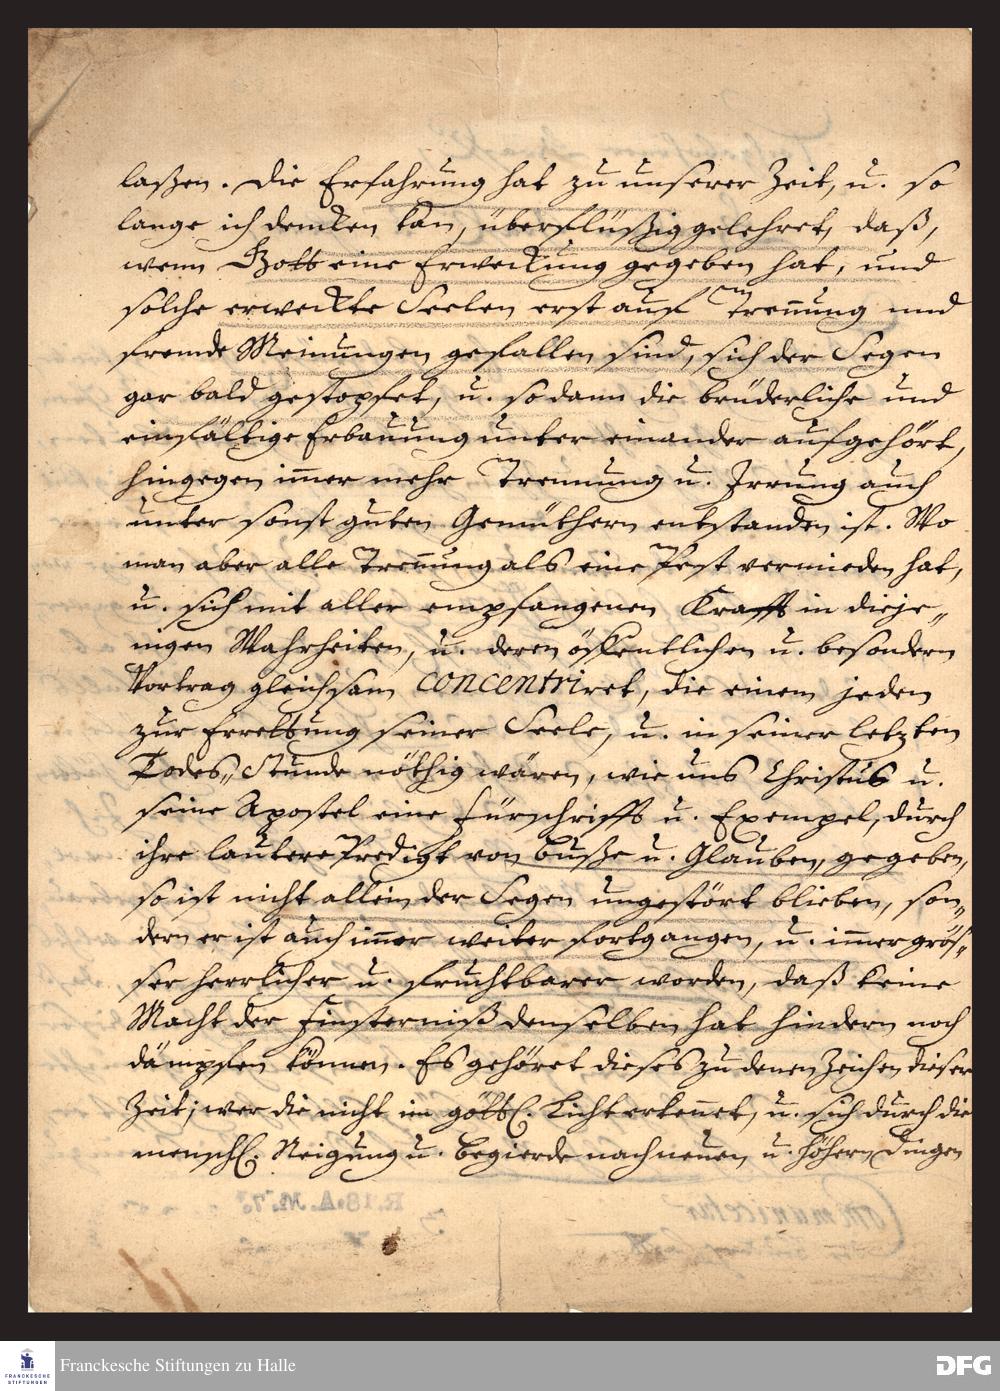 laßen. Die Erfahrung hat zu unserer Zeit, u. so
lange ich dencken kan, überflüßig gelehret, daß,
wenn Gott eine Erweckung gegeben hat, und
solche erweckte Seelen erst auf Trennung und
fremde Meinungen gefallen sind, sich der Segen
gar bald gestopfet, u. sodann die brüderliche und
einfältige Erbauung unter einander aufgehört,
hingegen im̄er mehr Trennung u. Irrung auch
unter sonst guten Gemüthern entstanden ist. Wo
man aber alle Tren̄ung als eine Pest vermieden hat,
u. sich mit aller empfangenen Krafft in dieje„
nigen Wahrheiten, u. deren öffentlichen u. besondern
Vortrag gleichsam concentriret, die einem jeden
zur Errettung seiner Seele, u. in seiner letzten
Todes„Stunde nöthig wären, wie uns Christus u.
seine Apostel eine Fürschrifft u. Exempel, durch
ihre lautere Predigt von Buße u. Glauben, gegeben,
so ist nicht allein der Segen ungestört blieben, son„
dern er ist auch im̄er weiter fortgangen, u. im̄er grös„
ser herrlicher u. fruchtbarer worden, daß keine
Macht der Finsterniß denselben hat hindern noch
dämpfen können. Es gehöret dieses zu denen Zeichen dieser
Zeit; wer die nicht im göttl. Licht erken̄et, u. sich durch die
menschl. Neigung u. Begierde nach neuen u. höhern Dingen
Franckesche Stiftungen zu Halle
FRANCKESCHE
STIFTUNGEN
DFG